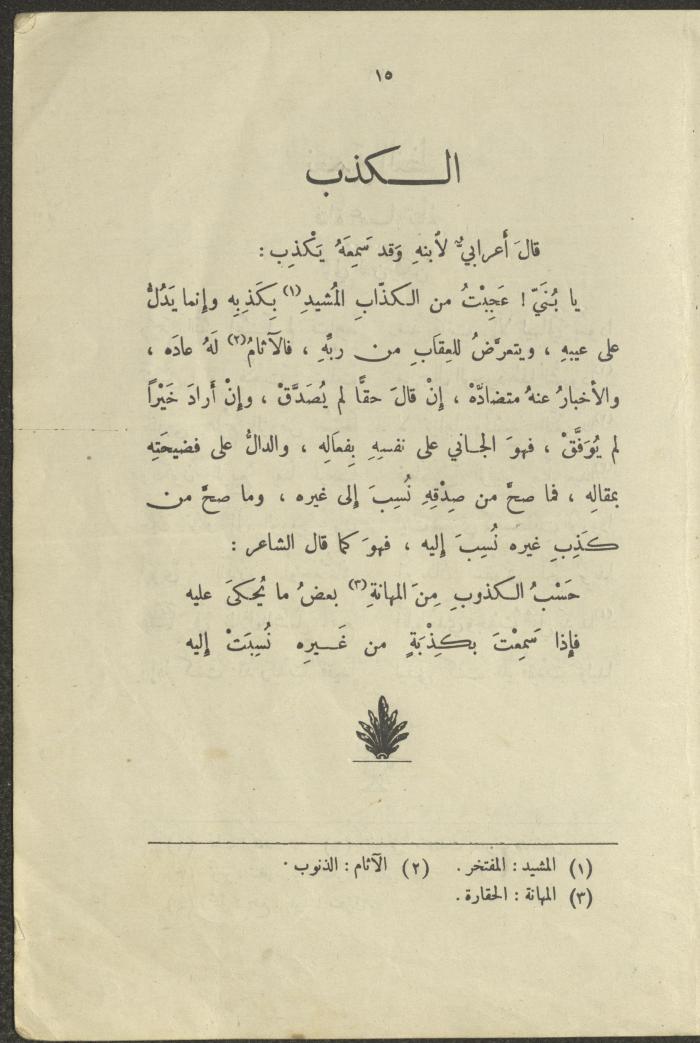 ١٥
الكذب
قالَ أَعرابيٌّ لأبنهِ وَقد سَمِعَهُ يَكْذِب :
يا بُنَيّ ! عَجِبْتُ من الكذّابِ المُشيدِ(١) بِكَذبِه وإِنما يَدُلُّ
على عيبهِ ، ويتعرَّضُ للعِقَابِ من ربِّهِ ، فالآثامُ(٢) لَهُ عادَه ،
والأخبارُ عنهُ متضادَّهْ ، إِنْ قالَ حقًّا لم يُصَدَّقْ ، وإِنْ أَرادَ خَيْرًا
لم يُوَفَّقْ ، فهوَ الجاني على نفسِهِ بِفعَالِه ، والدالُّ على فضيحَتِه
بمقالِه ، فما صحَّ من صِدْقِهِ نُسِبَ إِلى غيره ، وما صحَّ من
كَذِبِ غيره نُسِبَ إِليه ، فهوَ كما قال الشاعر :
حَسْبُ الكذوبِ مِنَ المهانةِ(٣) بعضُ ما يُحكىَ عليه
فإِذا سَمِعْتَ بكِذْبَةٍ من غَيرِه نُسِبَتْ إِليه
(١) المشيد : المفتخر . (٢) الآثام : الذنوب .
(٣) المهانة : الحقارة .